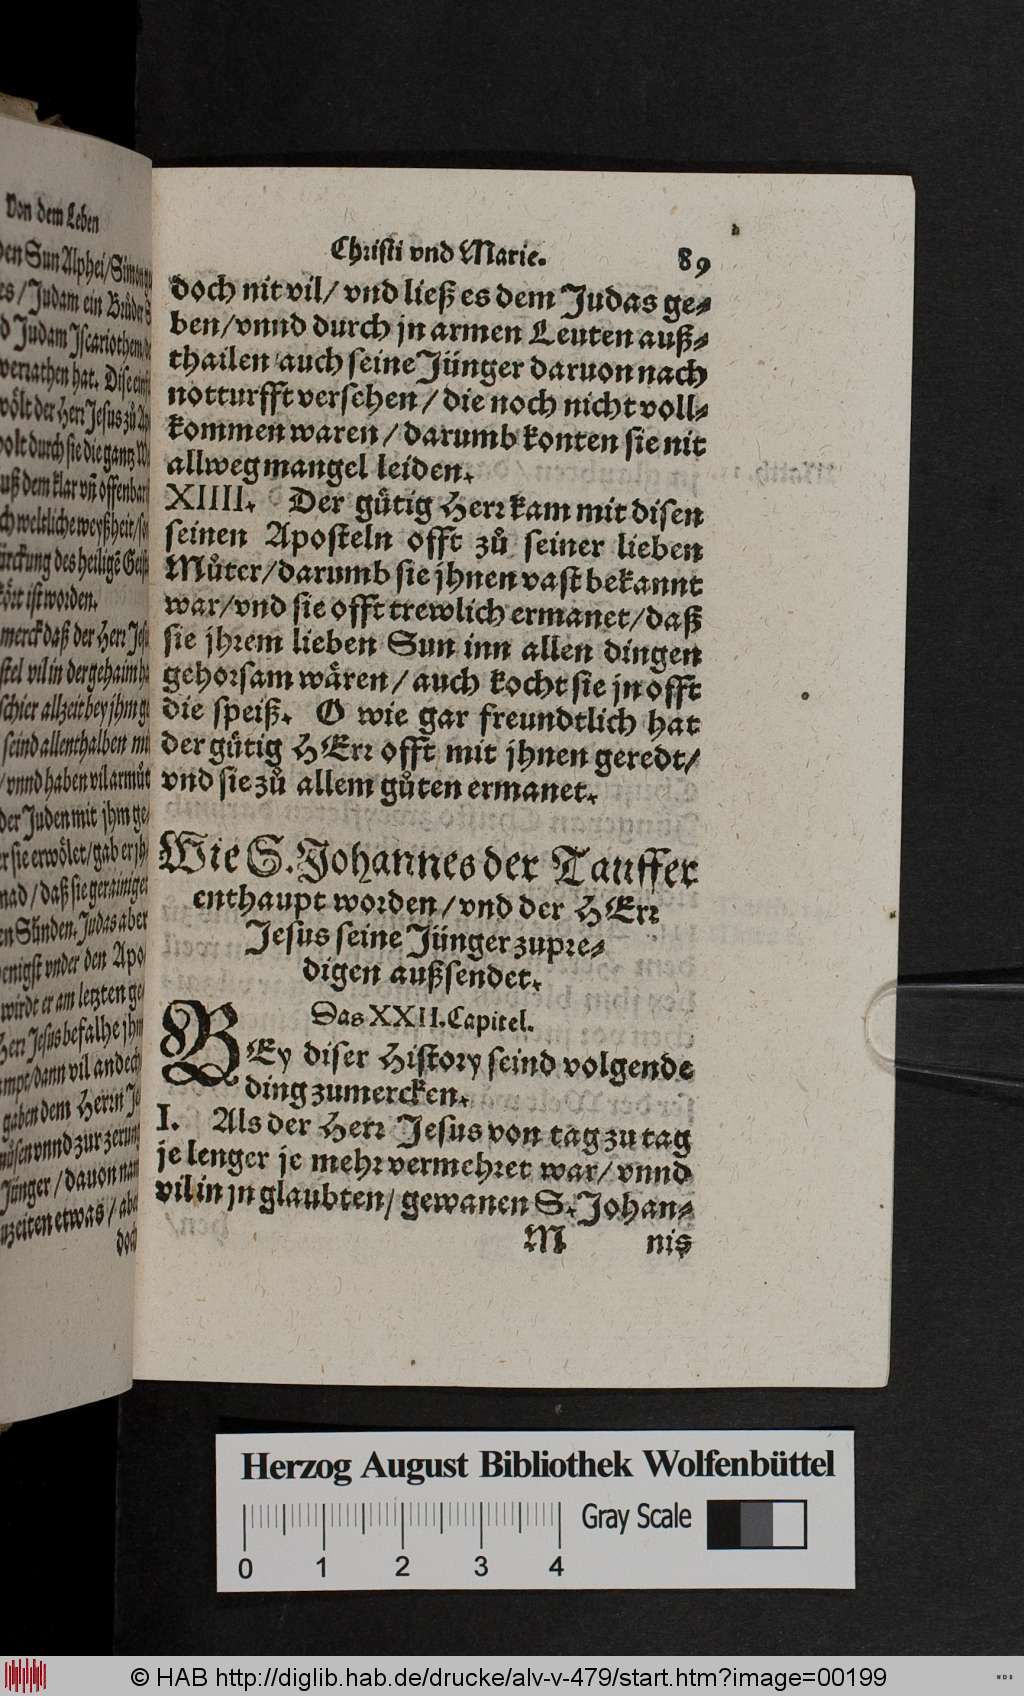 Von dem Leben
den Sun Alphei/Simon
es/Judam ein Brůder
d Judam Iscariothem/
verrathen hat. Dise
wölt der Herr Jesus zů
wolt durch sie die gantz
auß dem klar vñ offenbar
ch weltliche weyßheit/
ürckung des heiligẽ Geist
kört ist worden.
merck daß der Herr
stel vil in der gehaim
schier allzeit bey jhm
seind allenthalben mit
/vnnd haben vil armůt
der Juden mit jhm ge-
er sie erwölet/gab er jh
nad/daß sie gerainiget
en Sünden. Judas aber
wenigst vnder den Apo
wirdt er am letzten ge
Herr Jesus befalhe jhm
dann vil andech
gaben dem Herrn Je
vnnd zur zerung
Jünger/dauon nam
nzeiten etwas/aber
doch
Christi vnd Marie. 89
doch nit vil/ vnd ließ es dem Judas ge-
ben/vnnd durch jn armen Leuten auß-
thailen/auch seine Jünger daruon nach
notturfft versehen/die noch nicht voll-
kommen waren/darumb konten sie nit
allweg mangel leiden.
XIIII. Der gütig Herr kam mit disen
seinen Aposteln offt zů seiner lieben
Můter/darumb sie jhnen vast bekannt
war/vnd sie offt trewlich ermanet/daß
sie jhrem lieben Sun inn allen dingen
gehorsam wären/auch kocht sie jn offt
die speiß. O wie gar freundtlich hat
der gütig HErr offt mit jhnen geredt/
vnd sie zů allem gůten ermanet.
Wie S. Johannes der Tauffer
enthaupt worden/vnd der HErr
Jesus seine Jünger zupre-
digen außsendet.
Das XXII. Capitel.
BEy diser History seind volgende
ding zumercken.
I. Als der Herr Jesus von tag zu tag
je lenger je mehr vermehret war/vnnd
vil in jn glaubten/gewanen S. Johan-
M nis
Herzog August Bibliothek Wolfenbüttel
Gray Scale
0 1 2 3 4
© HAB http://diglib.hab.de/drucke/alv-v-479/start.htm?image=00199